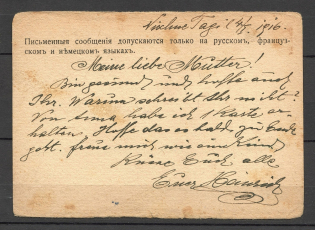 Nischne Tagil 2/7. 1916.
Письменныя сообщенія допускаются только на русскомъ, француз-
скомъ и нѣмецкомъ языкахъ.
Meine liebe Mutter!
Bin gesund und hoffe auch
Ihr. Warum schreibt Ihr nicht?
Von Anna habe ich 1 Karte er-
halten. Hoffe das es bald zu Ende
geht. freue mich wie ein Kind
Küsse Euch alle
Euer Heinrich